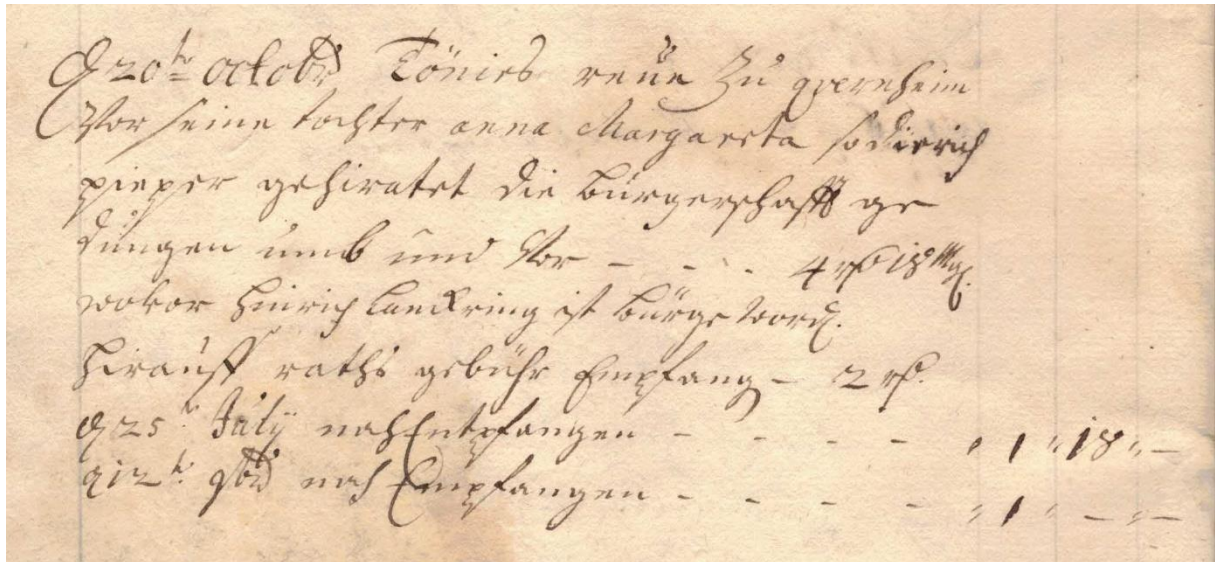 D 20te octobr Tönies reüe Zu qvernheim
Vor seine tochter anna Margareta so dierich
pieper gehiratet die bürgerschafft ge
düngen umb und Vor - - - 4 rth 18 Mg.
wovor Hinrich Landtring ist bürge word.
Hirauff raths gebühr Empfang - 2 rth.
D 25t July noch Entpfangen - - - - " 1 " 18 " -
D 12t 9br noch Empfangen - - - - " 1 " - " -